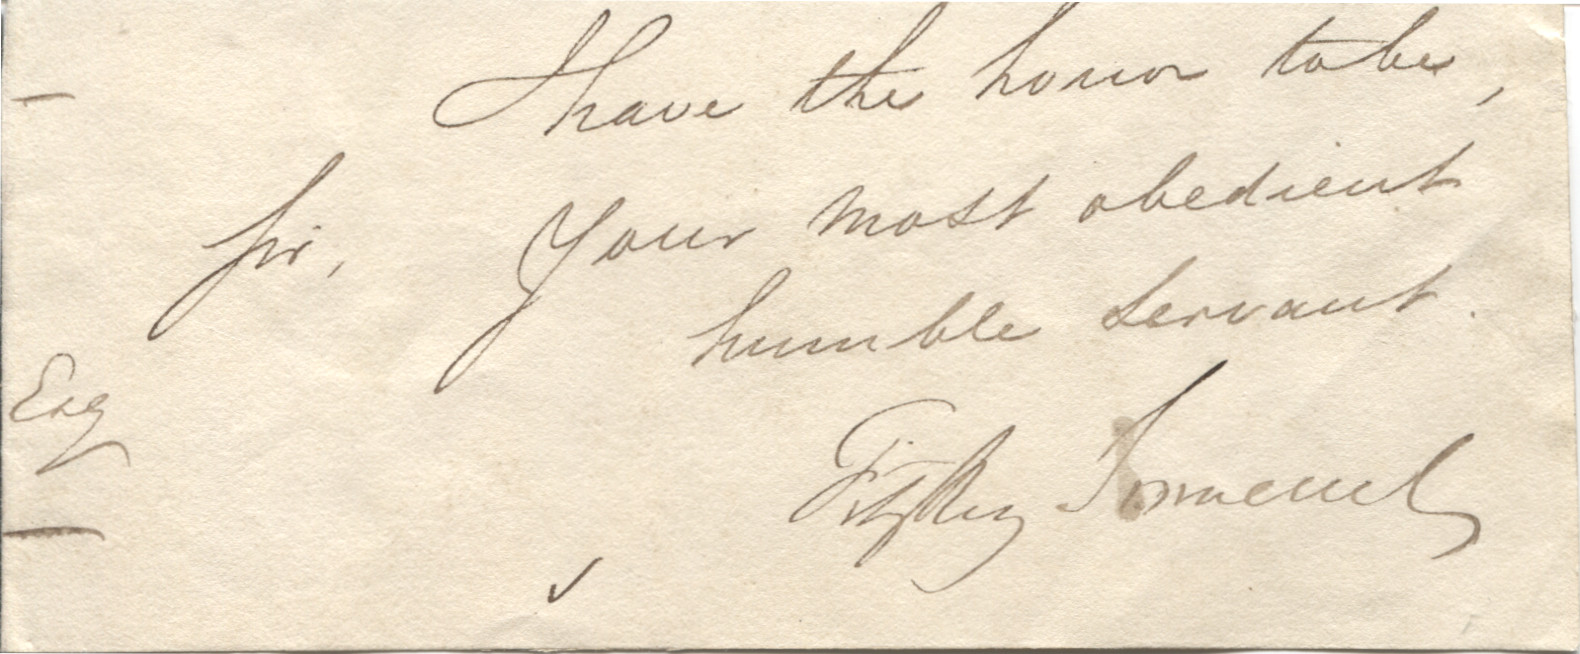 I have the honor to be,
Sir, Your most obedient
humble Servant.
Esq
FitzRoy Somerset